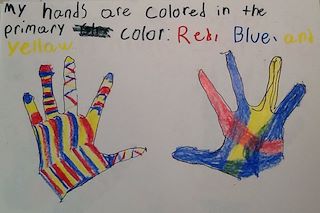 My hands are colored in the
primary color: Red, Blue, and
yellow